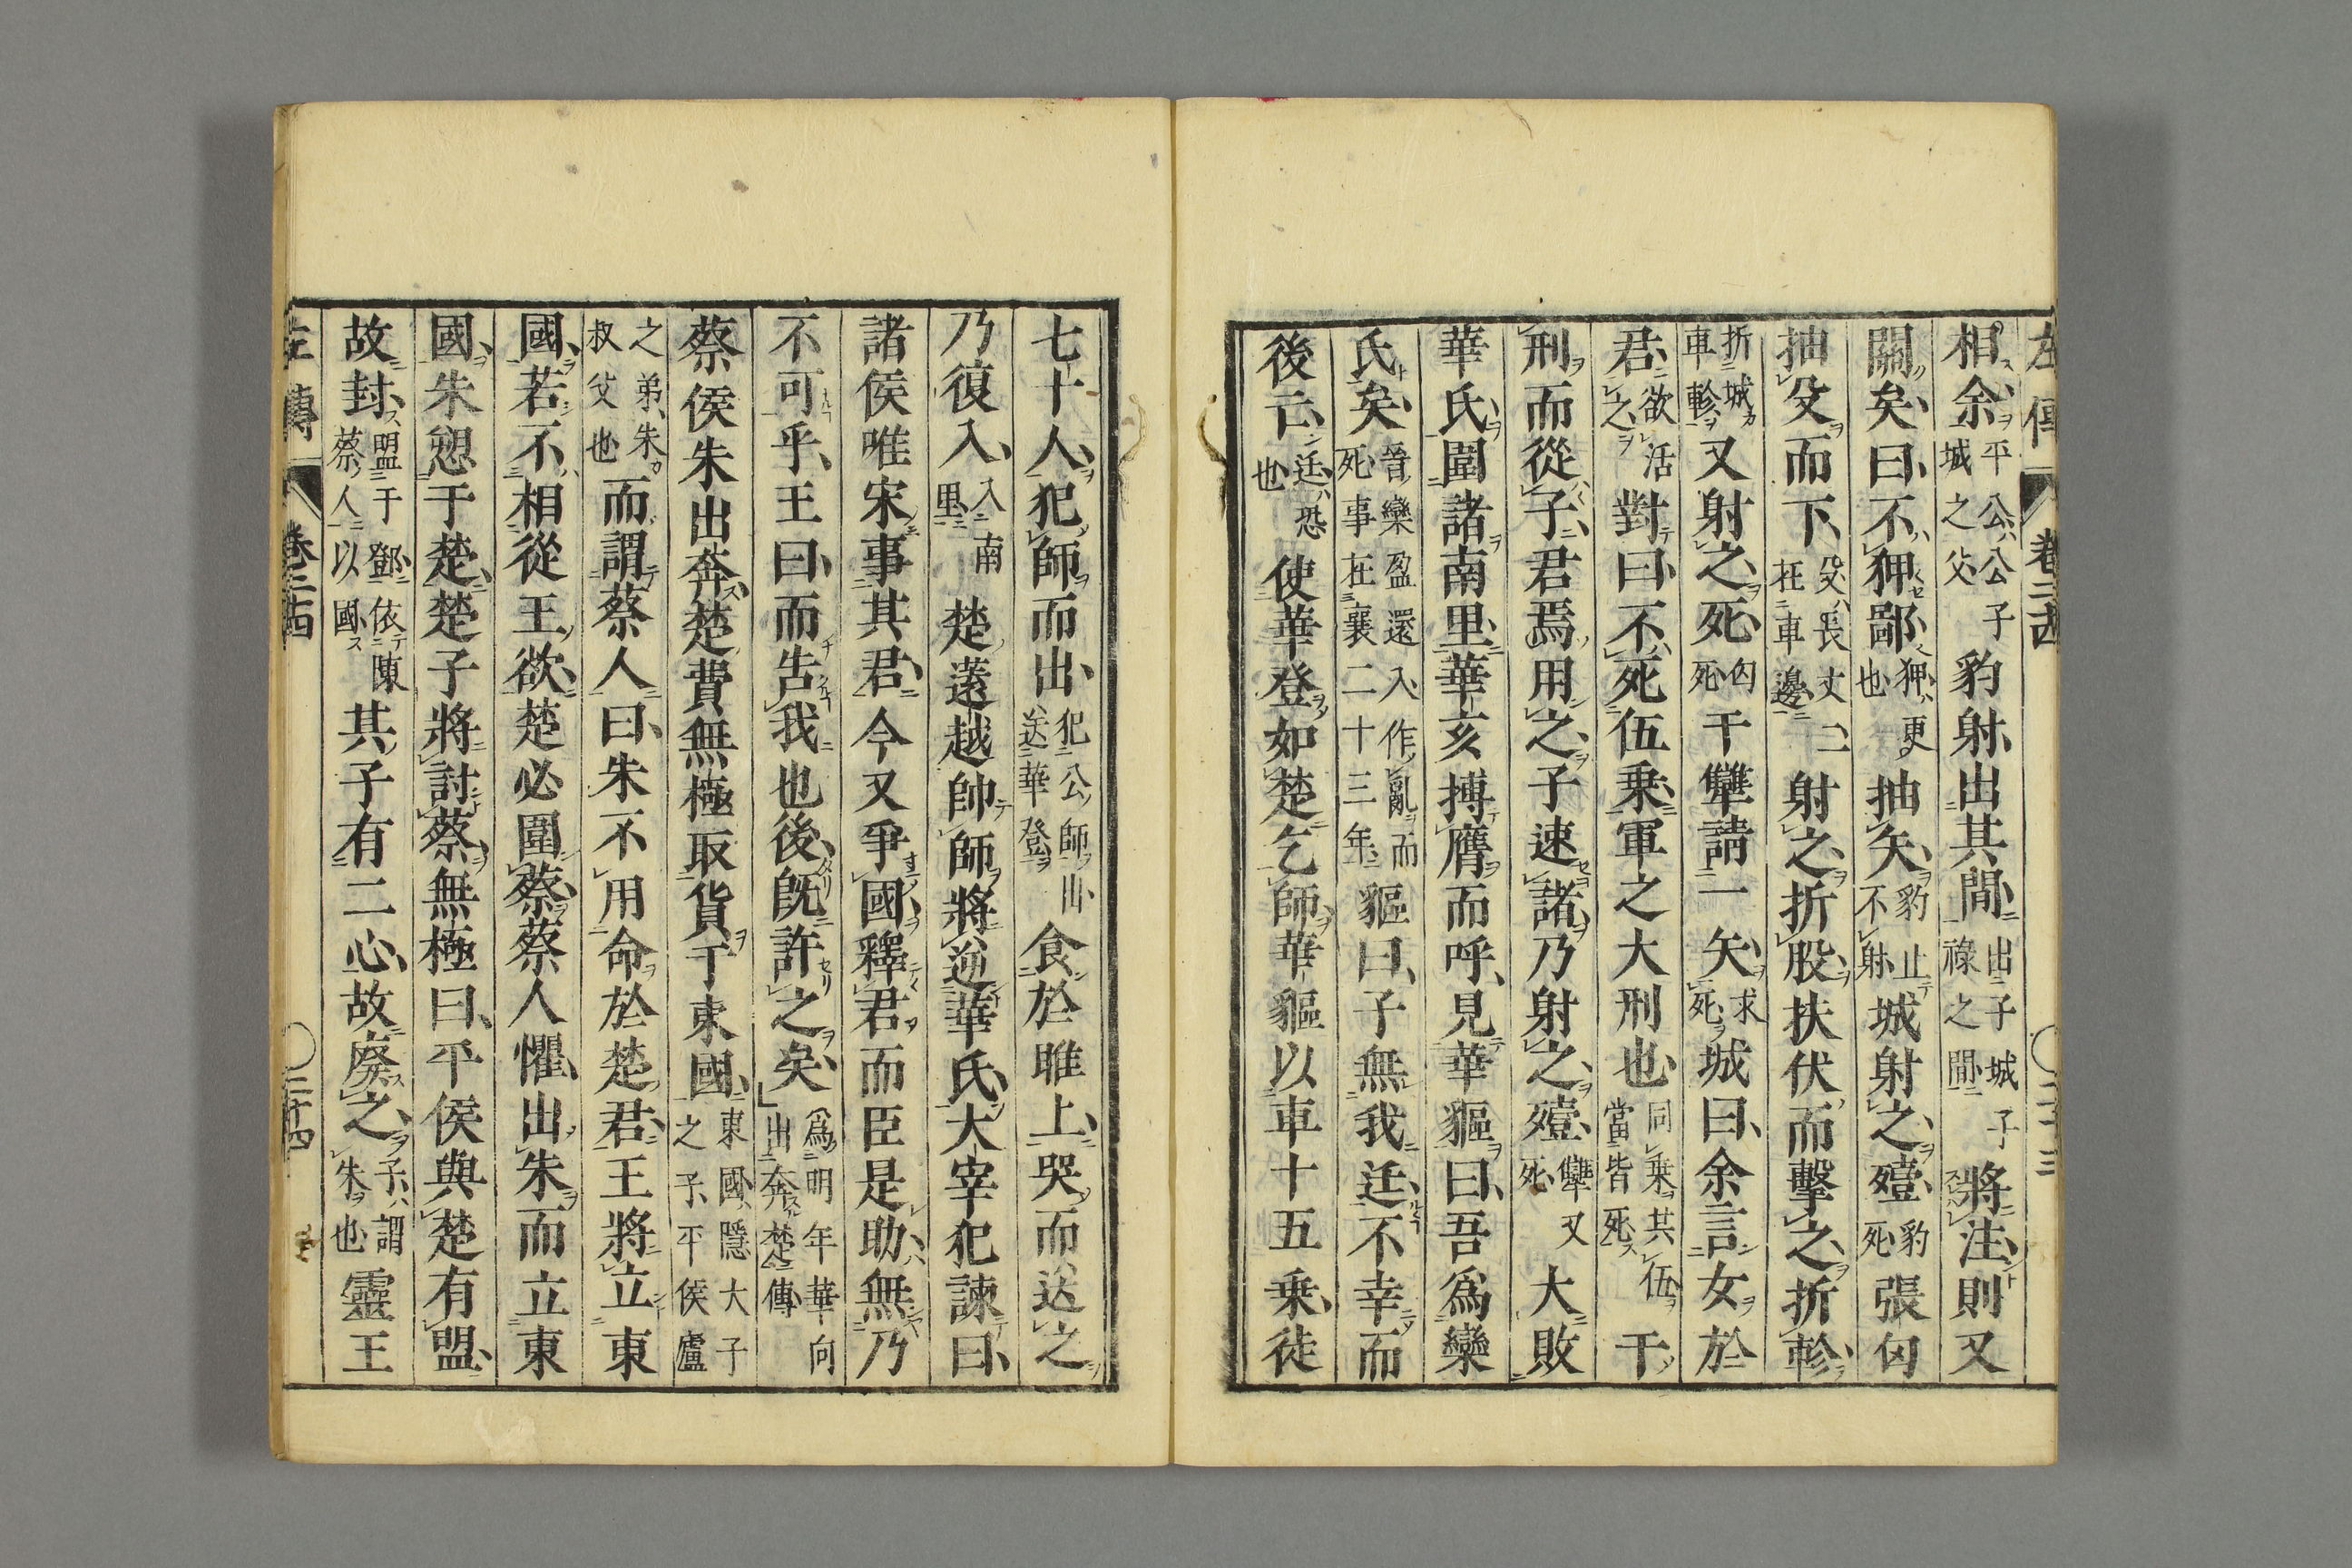 左傳 卷二十四 ○二十三
相余平公公子城之父豹射出其間出子城子祿之間將注則又
關矣曰不狎鄙狎更也抽矢豹止不射城射之殪豹死張匄
抽殳而下殳長丈二在車邊射之折股扶伏而擊之折軫
折城車軫又射之死匄死干犨請一矢求死城曰余言女於
君欲活之對曰不死伍乗軍之大刑也同乗共伍當皆死干
刑而從子君焉用之子速諸乃射之殪犨又死大敗
華氏圍諸南里華亥搏膺而呼見華貙曰吾爲欒
氏矣晉欒盈還入作亂而死事在襄二十三年貙曰子無我迋不幸而
後亡迋恐也使華登如楚乞師華貙以車十五乗徒
七十人犯師而出犯公師出送華登食於睢上哭而送之
乃復入入南里楚薳越帥師將逆華氏大宰犯諫曰
諸侯唯宋事其君今又爭國釋君而臣是助無乃
不可乎王曰而告我也後旣許之矣爲明年華向出奔楚傳
蔡侯朱出奔楚費無極取貨于東國東國隱大子之子平侯廬
之弟朱叔父也而謂蔡人曰朱不用命於楚君王將立東
國若不相從王欲楚必圍蔡蔡人懼出朱而立東
國朱愬于楚楚子將討蔡無極曰平侯與楚有盟
故封盟于鄧依陳蔡人以國其子有二心故廢之子謂朱也靈王
左傳 卷二十四 ○二十四